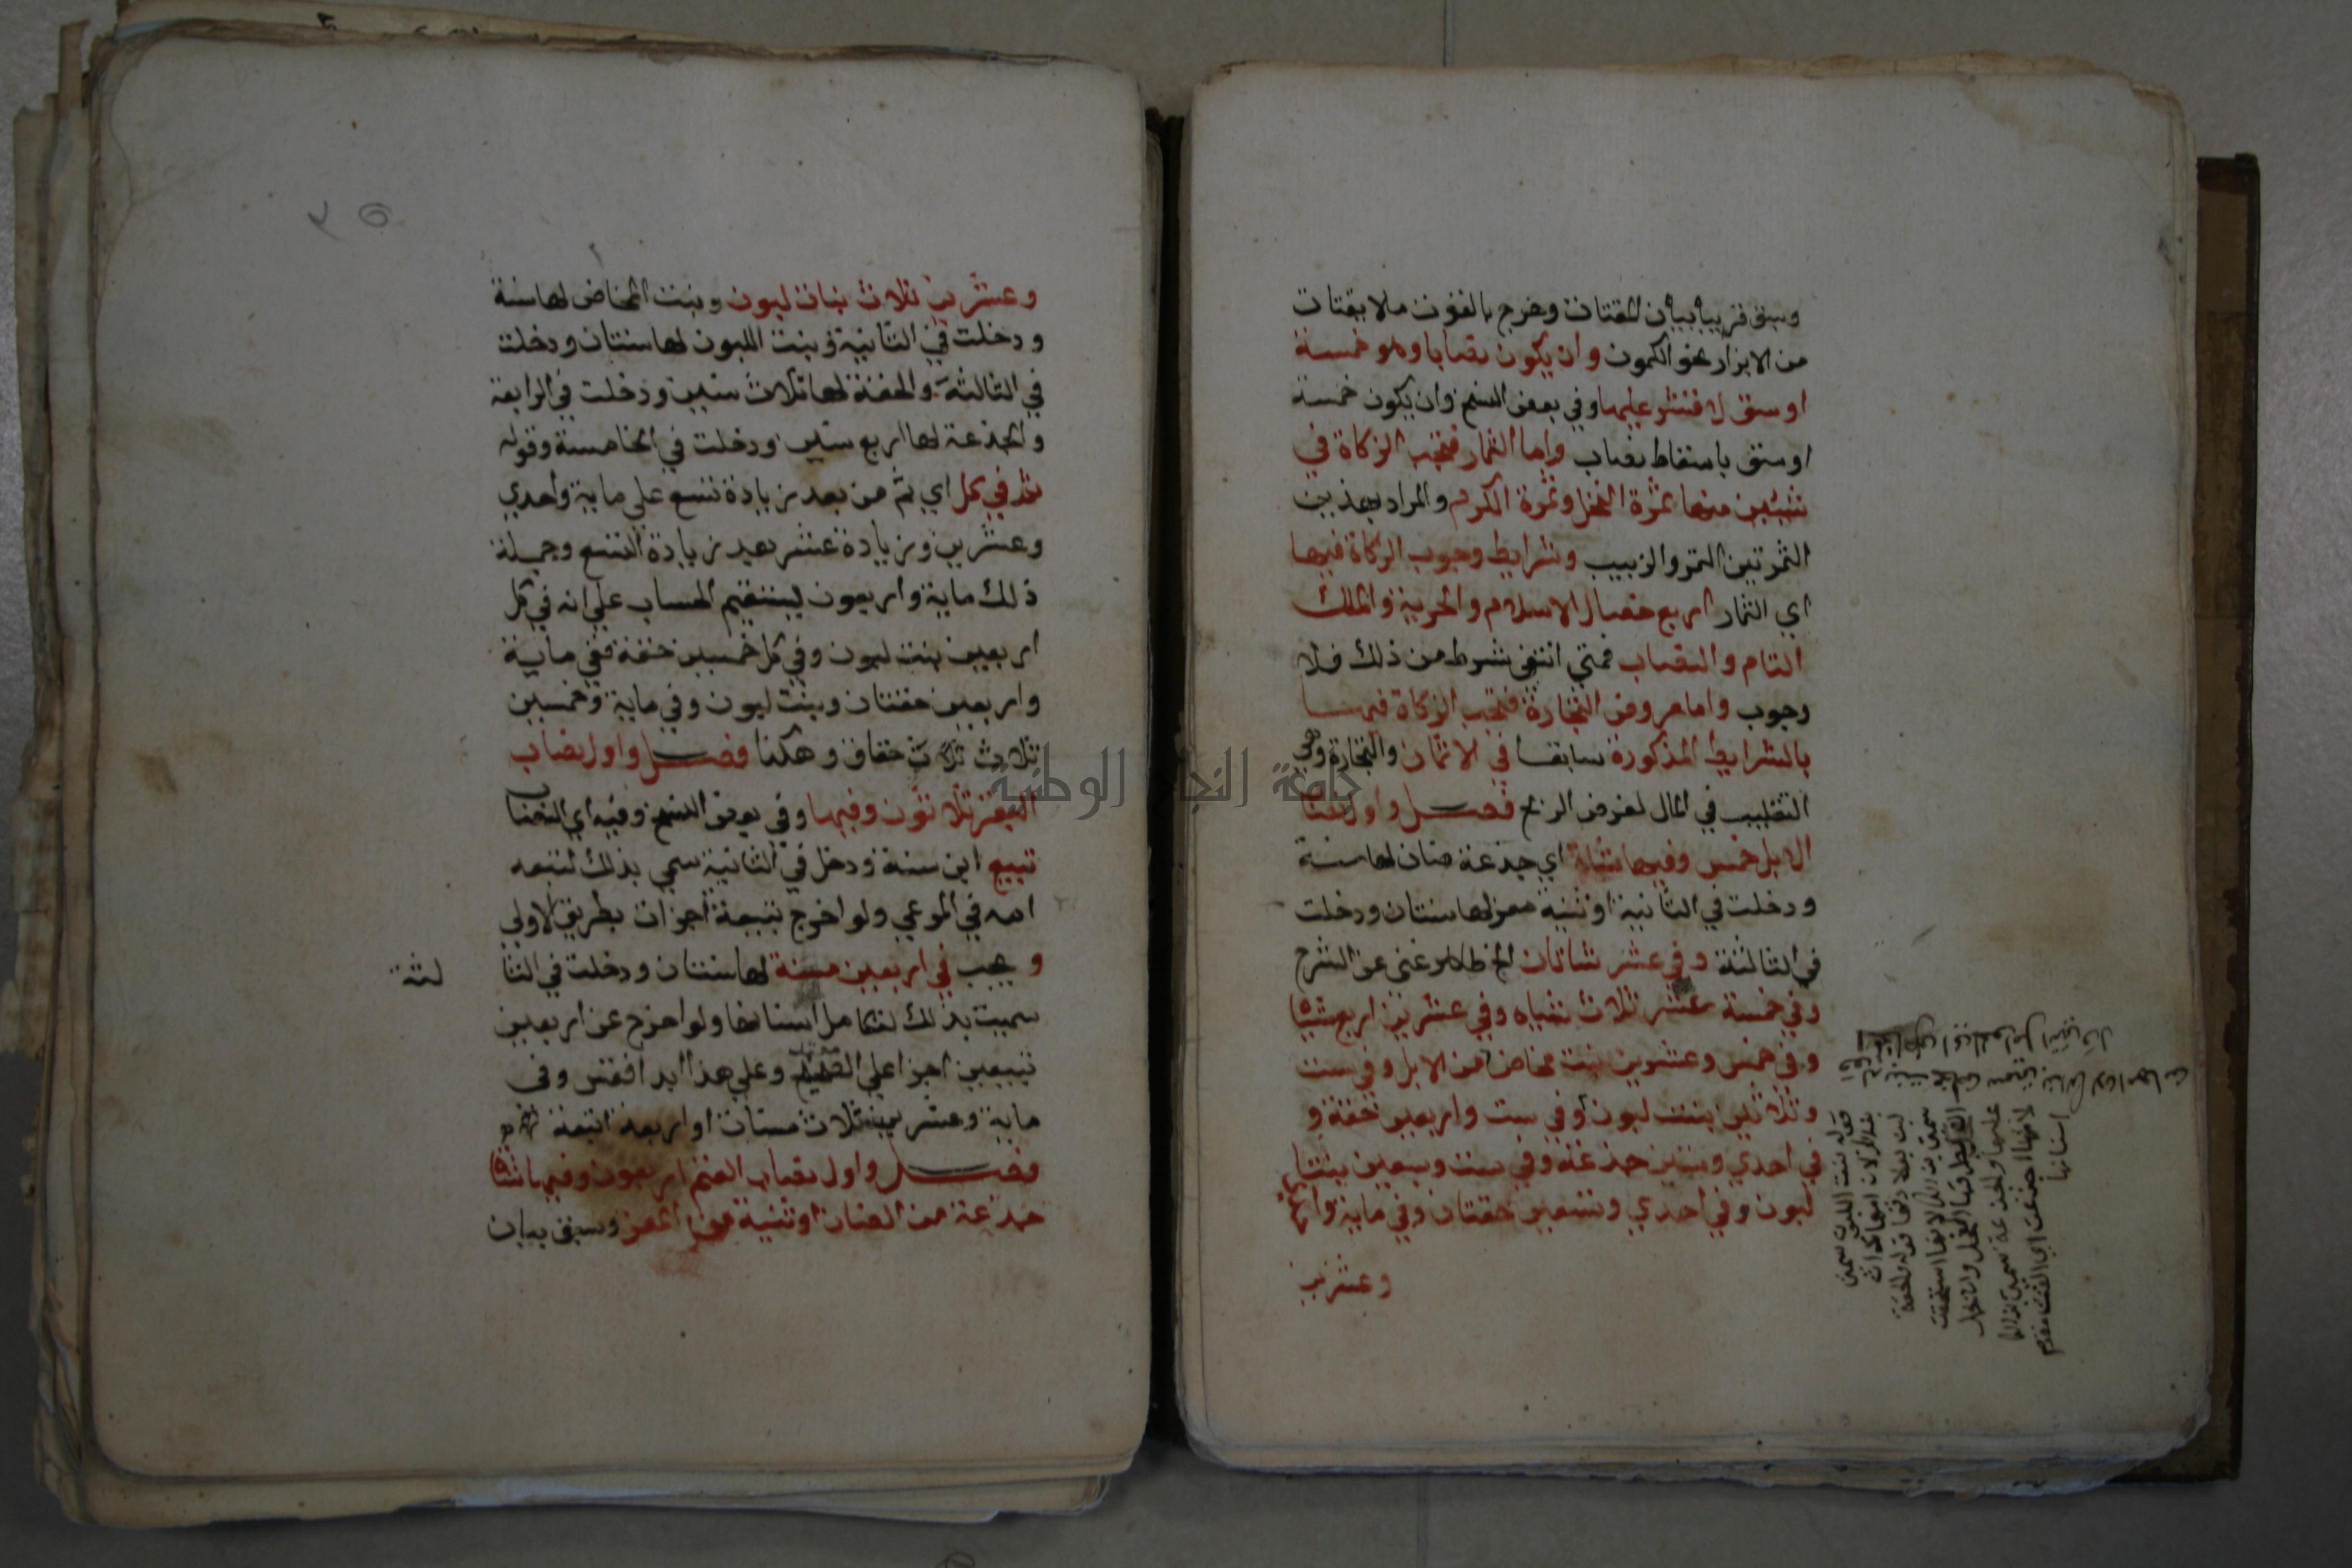 وسبق قريبا بيان المقتات وخرج بالقوت ملا يقتات
من الابزار نحو الكمون وان يكون نصابا وهو خمسة
اوسق لا قشر عليها وفي بعض النسخ وان يكون خمسة
اوسق باسقاط نصاب واما الثمار فتجب الزكاة في
شيئين منها ثمرة النخل وثمرة الكرم والمراد بهذين
الثمرتين التمر والزبيب وشرايط وجوب الزكاة فيها
اي الثمار اربع خصال الاسلام والحرية والملك
التام والنصاب فمتي انتفى شرط من ذلك فلا
وجوب واما عروض التجارة فتجب الزكاة فيها
بالشرايط المذكورة سابقا في الاثمان والتجارة وهي
التقليب في المال لغرض الربح فصل واول نصاب
الابل خمس وفيها شاة اي جذعة ضان لها سنة
ودخلت في الثانية او ثنية معز لها سنتان ودخلت
في الثالثة وفي عشر شاتان الخ ظاهر غني عن الشرح
وفي خمسة عشر ثلاث شياه وفي عشرين اربع شياه
وفي خمس وعشرين بنت مخاض من الابل وفي ست
وثلاثين بنت لبون وفي ست واربعين حقة و
في احدي وستين جذعة وفي ست وسبعين بنتا
لبون وفي احدي وتسعين حقتان وفي ماية واحدي
وعشرين
قوله بنت اللبون سميت
بذلك لان امها
قوله والحقة
سميت بذلك لانها استحقت
ان يطرقها الفحل
والجذعة سميت بذلك
لانها اجذعت اي القت مقدم
اسنانها
٢٥
وعشرين ثلاث بنات لبون وبنت المخاض لها سنة
ودخلت في الثانية وبنت اللبون لها سنتان ودخلت
في الثالثة والحقة لها ثلاث سنين ودخلت في الرابعة
والجذعة لها اربع سنين ودخلت في الخامسة وقوله
ثم في كل اي ثم من بعد زيادة تسع علي ماية واحدي
وعشرين وزيادة عشر بعد زيادة التسع وجملة
ذلك ماية واربعون ليستقيم الحساب علي انه في كل
اربعين بنت لبون وفي كل خمسين حقة ففي ماية
واربعين حقتان وبنت لبون وفي ماية وخمسين
ثلاث حقاق وهكذا فصل واول نصاب
البقر ثلاثون وفيها وفي بعض النسخ وفيه اي النصاب
تبيع ابن سنة ودخل في الثانية سمي بذلك لتبعه
امه في المرعي ولو اخرج تبيعة اجزات بطريق الاولي
ويجب في اربعين مسنة لها سنتان ودخلت في الثا
لثة
سميت بذلك لتكامل اسنانها ولو اخرج عن اربعين
تبيعين اجزا علي الصحيح وعلي هذا ابدا فقس وفي
ماية وعشرين ثلاث مسنات او اربعة اتبعة
فصل واول نصاب الغنم اربعون وفيها شاة
جذعة من الضان او ثنية من المعز وسبق بيان
جامعة النجاح الوطنية